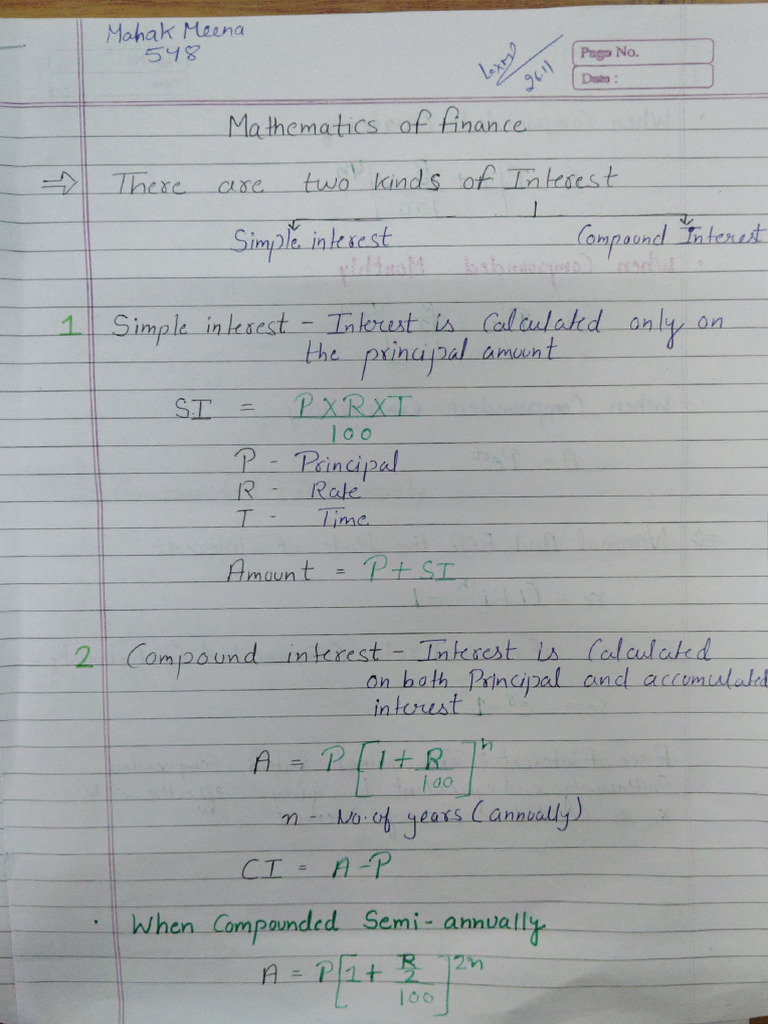 Mahak Meena
548
Page No.
Date :
26.11
Mathematics of finance
⇒ There are two kinds of Interest
Simple interest Compound Interest
1 Simple interest - Interest is Calculated only on
the principal amount
S.I = P X R X T
100
P - Principal
R - Rate
T - Time
Amount = P + SI
2 Compound interest - Interest is Calculated
on both Principal and accumulated
interest
A = P [1 + R/100]^n
n - No. of years (annually)
CI = A - P
· When Compounded Semi-annually
A = P [1 + R/2/100]^2n